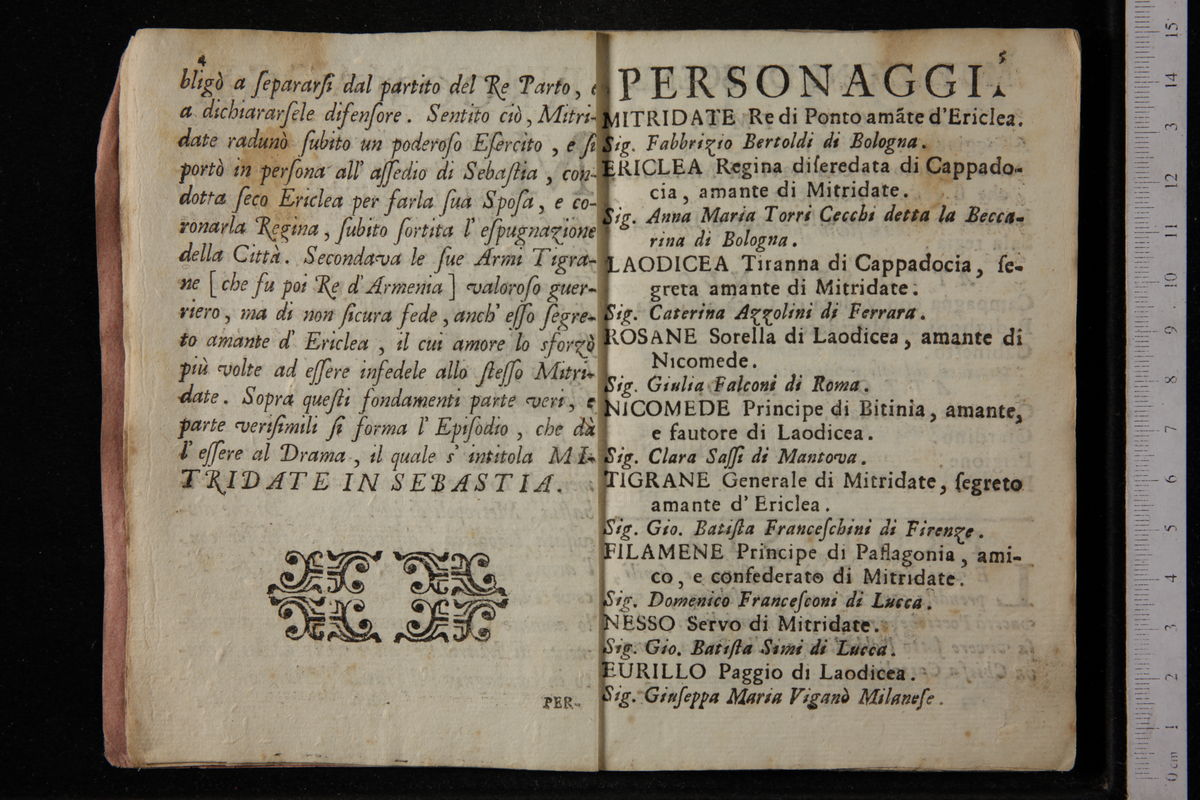 4
bligò a ſepararſi dal partito del Re Parto, e
a dichiararſele difenſore. Sentito ciò, Mitri-
date radunò ſubito un poderoſo Eſercito, e ſi
portò in perſona all' aſſedio di Sebaſtia, con-
dotta ſeco Ericlea per farla ſua Spoſa, e co-
ronarla Regina, ſubito ſortita l' eſpugnazione
della Città. Secondava le ſue Armi Tigra-
ne [che fu poi Re d' Armenia] valoroſo guer-
riero, ma di non ſicura fede, anch' eſſo ſegre-
to amante d' Ericlea, il cui amore lo sforzò
più volte ad eſſere infedele allo ſteſſo Mitri-
date. Sopra queſti fondamenti parte veri, e
parte veriſimili ſi forma l' Epiſodio, che dà
l' eſſere al Drama, il quale s' intitola MI-
TRIDATE IN SEBASTIA.
PER-
5
PERSONAGGI.
MITRIDATE Re di Ponto amãte d'Ericlea.
Sig. Fabbrizio Bertoldi di Bologna.
ERICLEA Regina diſeredata di Cappado-
cia, amante di Mitridate.
Sig. Anna Maria Torri Cecchi detta la Becca-
rina di Bologna.
LAODICEA Tiranna di Cappadocia, ſe-
greta amante di Mitridate.
Sig. Caterina Azzolini di Ferrara.
ROSANE Sorella di Laodicea, amante di
Nicomede.
Sig. Giulia Falconi di Roma.
NICOMEDE Principe di Bitinia, amante,
e fautore di Laodicea.
Sig. Clara Saſſi di Mantova.
TIGRANE Generale di Mitridate, ſegreto
amante d' Ericlea.
Sig. Gio. Batiſta Franceſchini di Firenze.
FILAMENE Principe di Paflagonia, ami-
co, e confederato di Mitridate.
Sig. Domenico Franceſconi di Lucca.
NESSO Servo di Mitridate.
Sig. Gio. Batiſta Simi di Lucca.
EURILLO Paggio di Laodicea.
Sig. Giuſeppa Maria Viganò Milaneſe.
0 cm
1
2
3
4
5
6
7
8
9
10
11
12
13
14
15